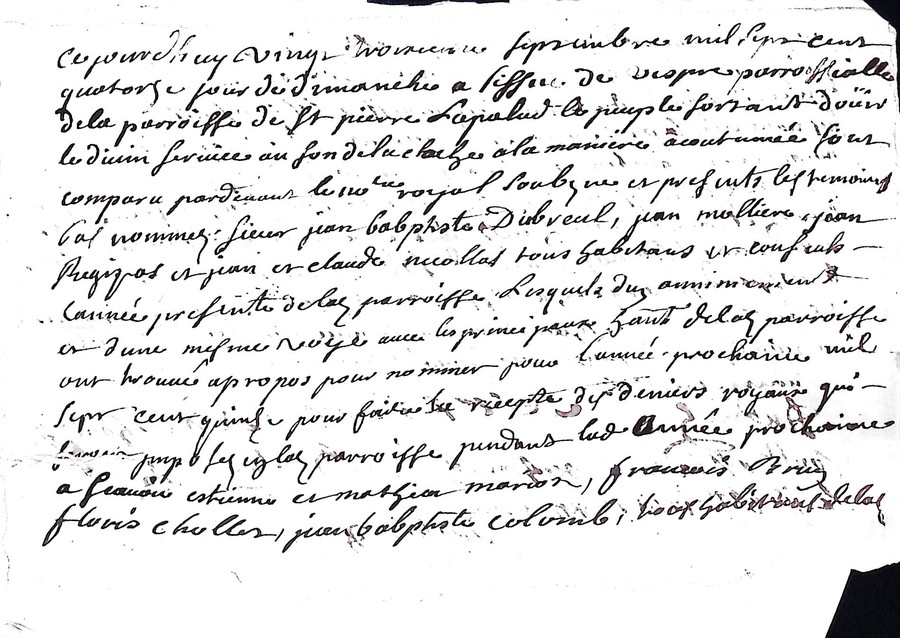 Cejourdhuy vingt troisieme septembre mil sept cent
quatorze jour de dimanche a lissue de vespre parroissialle
dela parroisse de St pierre Lapalud le peuple sortant d'oüir
le divin service au son dela cloche a la maniere acoutumée sont
comparu pardevant le no.re royal soubsne et presents les temoins
bas nommez sieur jean babptiste Dubreul, jean molliere, jean
et jean et claude nicollas tous habitans et consuls
lannée presente delad parroisse Lesquels dun
et dune mesme voye avec les principaux hants delad parroisse
ont trouvé apropos pour nommer pour lannée prochaine mil
sept cent quinze pour faire la recepte des deniers royaux qui
seront imposez en lad parroisse pendant lad année prochaine
a scavoir estienne et mathieu marion, francois
floris chollet, jean babptiste colomb, tous habitans delad